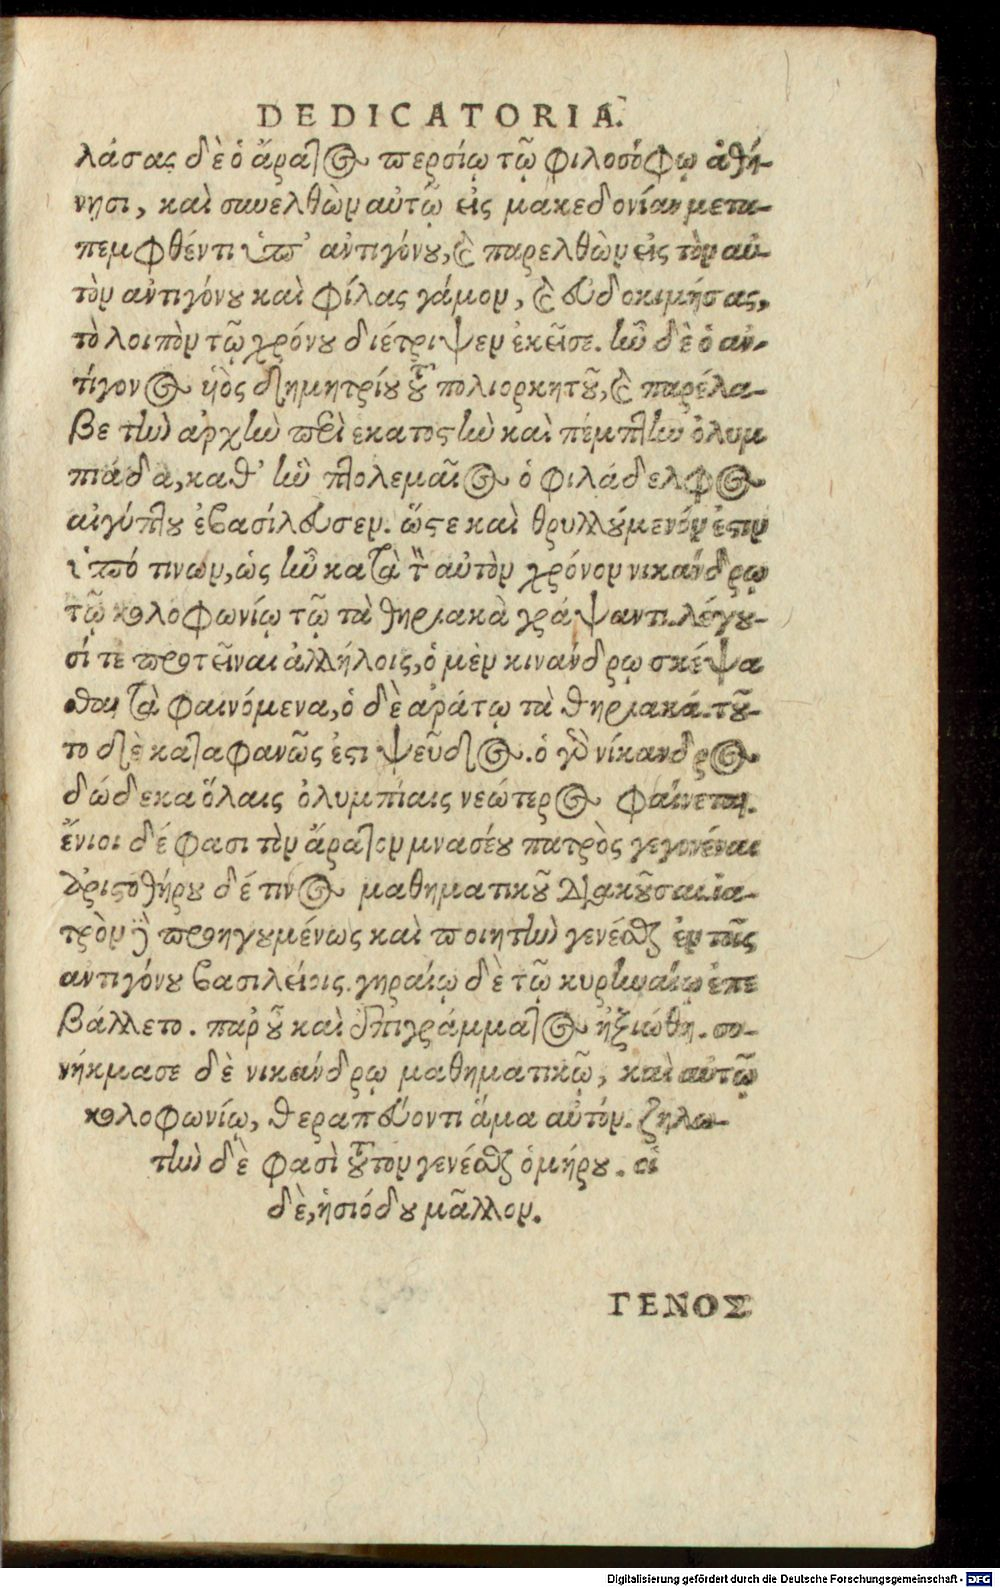 DEDICATORIA.
λάσας δὲ ὁ ἄρατος περσίῳ τῷ φιλοσόφῳ ἀθή-
νησι, καὶ συνελθὼν αὐτῷ εἰς μακεδονίαν μετα-
πεμφθέντι ὑπ’ αντιγόνου, καὶ παρελθὼν εἰς τὸν αὐ-
τὸν αντιγόνου καὶ φίλας γάμον, καὶ ευδοκιμήσας,
τὸ λοιπὸν τῷ χρόνου διέτριψεν ἐκεῖσε. ἦν δὲ ὁ αν-
τίγονος ὑὸς δημητρίου τοῦ πολιορκητοῦ, καὶ παρέλα-
βε τὴν αρχὴν περὶ εκατοστὴν καὶ πέμπτην ὀλυμ
πιάδα, καθ’ ἣν πτολεμαῖος ὁ φιλάδελφος
αιγύπτου ἐβασίλευσεν. ὥστε καὶ θρυλλούμενόν ἐστιν
ὑπό τινων, ὡς ἦν κατὰ τὸν αὐτὸν χρόνον νικάνδρῳ
τῷ κολοφωνίῳ τῷ τὰ θηριακὰ γράψαντι. λέγου-
σί τε προτεῖναι ἀλλήλοις, ὁ μὲν κινάνδρῳ σκέψα
σθαι τὰ φαινόμενα, ὁ δὲ αράτῳ τὰ θηριακά. τοῦ-
το δὲ καταφανῶς ἐστι ψεῦδος. ὁ γὰρ νίκανδρος
δώδεκα ὅλαις ὀλυμπίαις νεώτερος φαίνεται.
ἔνιοι δέ φασι τὸν ἄρατον μνασέου πατρὸς γεγονέναι
ἀριστοθήρου δέ τινος μαθηματικοῦ διακοῦσαι. ἰα-
τρὸν δὲ προηγουμένως καὶ ποιητὴν γενέσθαι ἐν τοῖς
αντιγόνου βασιλείοις. γηραίῳ δὲ τῷ κυρηναίῳ ἐπε
βάλλετο. παρ’ οὗ καὶ ἐπιγράμματος ἠξιώθη. συ-
νήκμασε δὲ νικάνδρῳ μαθηματικῷ, καὶ αὐτῷ
κολοφωνίῳ, θεραπεύοντι ἅμα αὐτόν. ζηλω-
τὴν δὲ φασὶ τοῦτον γενέσθαι ὁμήρου. οἱ
δὲ, ἡσιόδου μᾶλλον.
ΓΕΝΟΣ
Digitalisierung gefördert durch die Deutsche Forschungsgemeinschaft - DFG